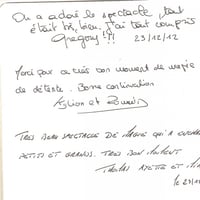 On a adoré le spectacle, tout
était très bien. J'ai tout compris
Gregory !!!
23/12/12
Merci pour ce très bon moment de magie
de détente. Bonne continuation
et Romain
TRES BEAU SPECTACLE DE MAGIE QUI A
PETITS ET GRANDS. TRES BON MOMENT.
ET
le 23/1